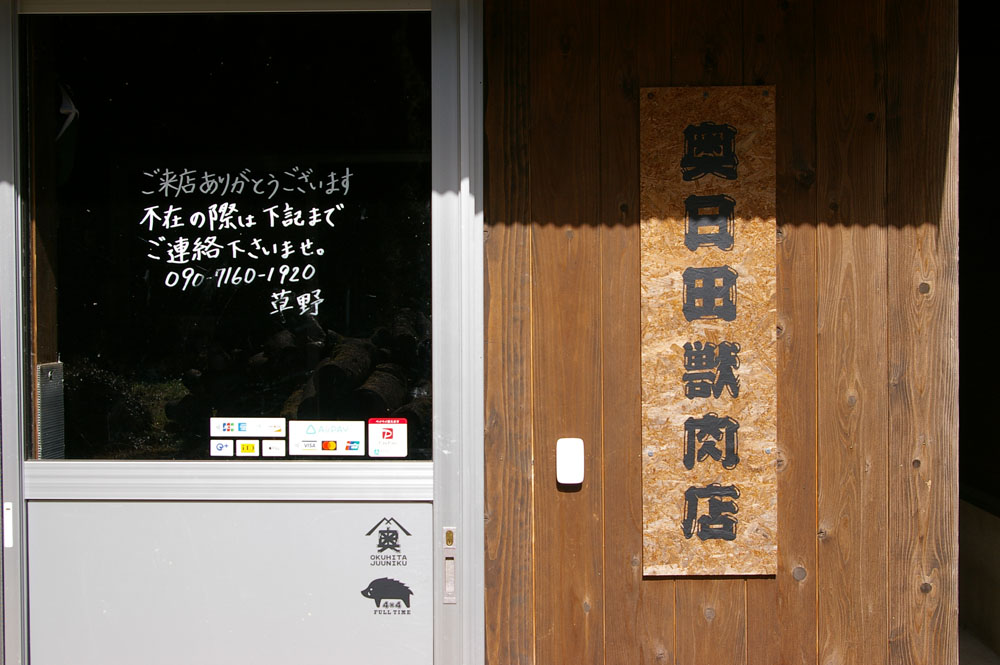 ご来店ありがとうございます
不在の際は下記まで
ご連絡下さいませ。
090-7160-1920
草野
JCB
VISA
奥
OKUHITA
JUUNIKU
4×4
FULL TIME
奥日田獣肉店